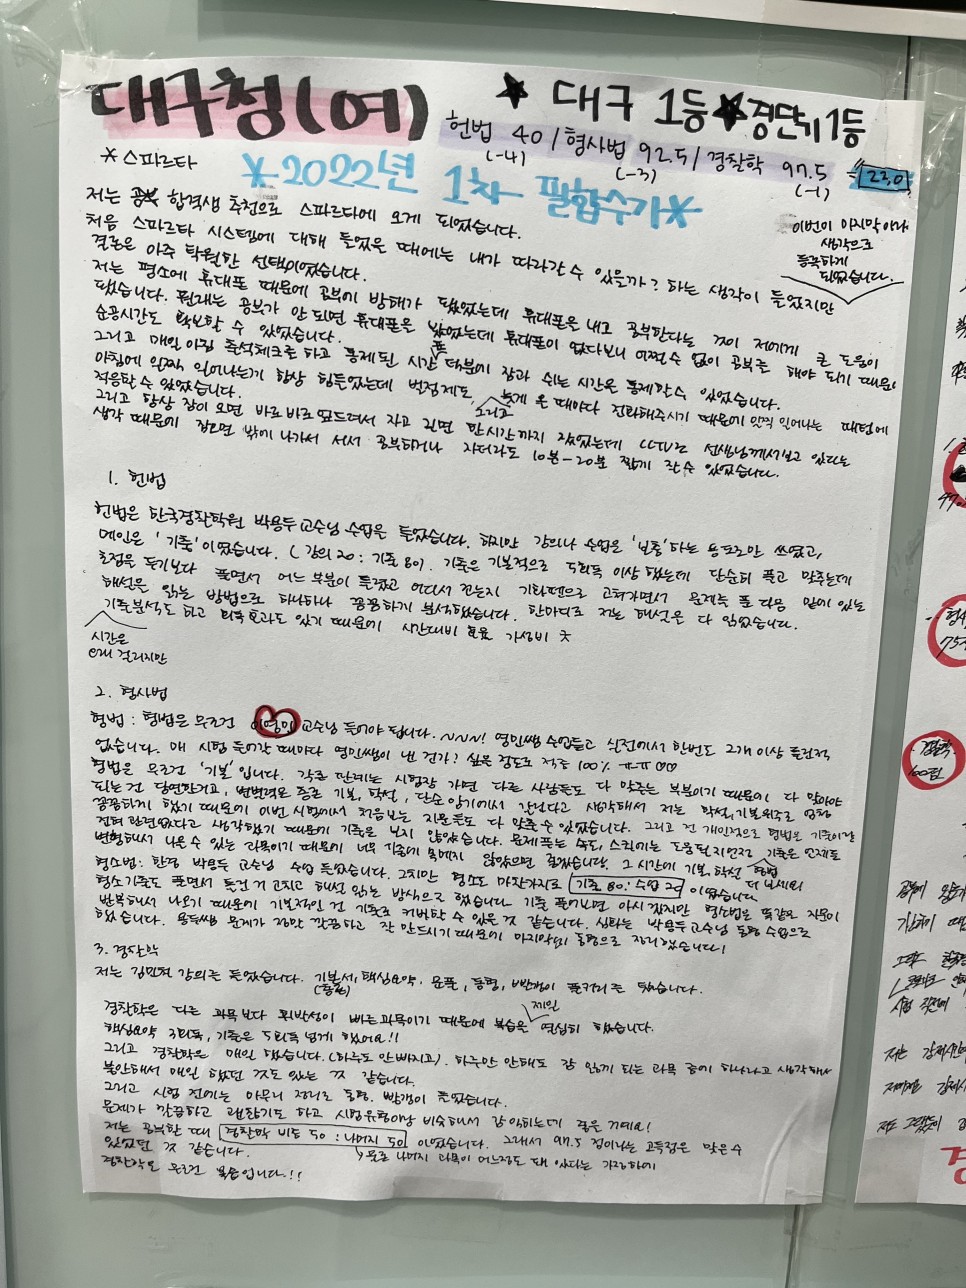 대구청(여)
★ 대구 1등 ★ 경단기 1등
헌법 40 / 형사법 92.5 / 경찰학 97.5 = 230
(-4) (-3) (-1)
* 스파르타
*2022년 1차 필합수기*
이번이 마지막이라
생각으로
등록하게
되었습니다.
저는 합격생 추천으로 스파르타에 오게 되었습니다.
처음 스파르타 시스템에 대해 들었을 때에는 내가 따라갈 수 있을까? 하는 생각이 들었지만
결론은 아주 탁월한 선택이었습니다.
저는 평소에 휴대폰 때문에 공부에 방해가 됐었는데 휴대폰을 내고 공부한다는 것이 저에게 큰 도움이
됐습니다. 원래는 공부가 안 되면 휴대폰을 봤었는데 휴대폰이 없다보니 어쩔 수 없이 공부를 해야 되기 때문에
순공시간도 확보할 수 있었습니다.
그리고 매일 아침 출석체크를 하고 통제된 시간표 덕분에 잠과 쉬는 시간을 통제할 수 있었습니다.
아침에 일찍 일어나는게 항상 힘들었는데 벌점제도, 그리고 늦게 올 때마다 전화해주시기 때문에 일찍 일어나는 패턴에
적응할 수 있었습니다.
그리고 항상 잠이 오면 바로바로 엎드려서 자고 길면 한시간까지 잤었는데 CCTV로 선생님께서 보고 있다는
생각 때문에 잠오면 밖에 나가서 서서 공부하거나 자더라도 10분-20분 짧게 잘 수 있었습니다.
1. 헌법
헌법은 한국경찰학원 박용두 교수님 수업을 들었습니다. 하지만 강의나 수업은 '보충'하는 용도로만 썼었고,
메인은 '기출'이었습니다. (강의 20 : 기출 80). 기출은 기본적으로 5회독 이상 했는데 단순히 풀고 맞추는데
초점을 두기보다 풀면서 어느 부분이 틀렸고 어디서 끊는지 고쳐가면서 문제를 푼 다음 밑에 있는
해설은 읽는 방법으로 하나하나 꼼꼼하게 분석했습니다. 한마디로 저는 해설은 다 읽었습니다.
기출분석도 하고 회독 효과도 있기 때문에 시간대비 효율 가성비 굿
시간은
오래 걸리지만
2. 형사법
형법 : 형법은 무조건 이영민 교수님 들어야 됩니다. ~~~! 영민쌤 수업듣고 실전에서 한번도 2개 이상 틀린적
없습니다. 매 시험 들어갈 때마다 영민쌤이 낸 건가? 싶은 정도로 적중 100% ㅠㅠ ♡♡
형법은 무조건 '기본'입니다. 각론 판례는 시험장 가면 다른 사람들도 다 맞추는 부분이기 때문에 다 맞아야
되는 건 당연한거고, 변별력은 총론 기본, 학설, 단순 암기에서 갈린다고 생각해서 저는 학설, 기본위주로 엄청
꼼꼼하게 했기 때문에 이번 시험에서 처음보는 지문들도 다 맞출 수 있었습니다. 그리고 전 개인적으로 형법은 기출이랑
전혀 관련없다고 생각했기 때문에 기출은 보지 않았습니다. 문제푸는 속도, 스킬에는 도움될지언정 기출은 언제든
변형해서 나올 수 있는 과목이기 때문에 너무 기출에 목매지 않았으면 좋겠습니다. 그 시간에 기본, 학설 한번 더 보세요
형소법 : 한경 박용두 교수님 수업 들었습니다. 그치만 형소도 마찬가지로 기출 80 : 수업 20 이었습니다
형소기출도 풀면서 틀린거 고치고 해설 읽는 방식으로 했습니다. 기출 풀어보면 아시겠지만 형소법은 똑같은 지문이
반복해서 나오기 때문에 기본적인 건 기출로 커버할 수 있은 것 같습니다. 심화는 박용두교수님 동형 수업으로
했습니다. 용두쌤 문제가 정말 깔끔하고 잘 만드시기 때문에 마지막에 동형으로 정리했습니다!
3. 경찰학
저는 김민철 강의를 들었습니다. 기본서, 핵심요약, 문풀, 동형, 빨갱이 풀커리를 탔습니다.
경찰학은 다른 과목보다 휘발성이 빠른 과목이기 때문에 복습을 제일 열심히 했습니다.
핵심요약 3회독, 기출은 5회독 넘게 했어요!!
그리고 경찰학은 매일 했습니다. (하루도 안 빠지고). 하루만 안해도 감 잃게 되는 과목 중에 하나라고 생각해서
불안해서 매일 했던 것도 있는 것 같습니다.
그리고 시험 전에는 마무리 정리로 동형, 빨갱이 들었습니다.
문제가 깔끔하고 괜찮기도 하고 시험유형이랑 비슷해서 감 익히는데 좋은 거예요!
저는 공부할 때 경찰학 비중 50 : 나머지 50 이었습니다. 그래서 97.5 점이나는 고득점을 맞을 수
있었던 것 같습니다.
↳ 물론 나머지 과목이 어느정도 돼 있다는 가정하에
경찰학은 무조건 복습입니다!!